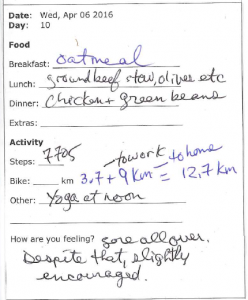 Date: Wed, Apr 06 2016
Day: 10
Food
Breakfast: oatmeal
Lunch: ground beef stew, olives etc
Dinner: Chicken + green beans
Extras:
Activity
Steps: 7705
to work to home
Bike: km 3.7 + 9 km = 12.7 km
Other: Yoga at noon
How are you feeling? sore all over.
Despite that, slightly
encouraged.